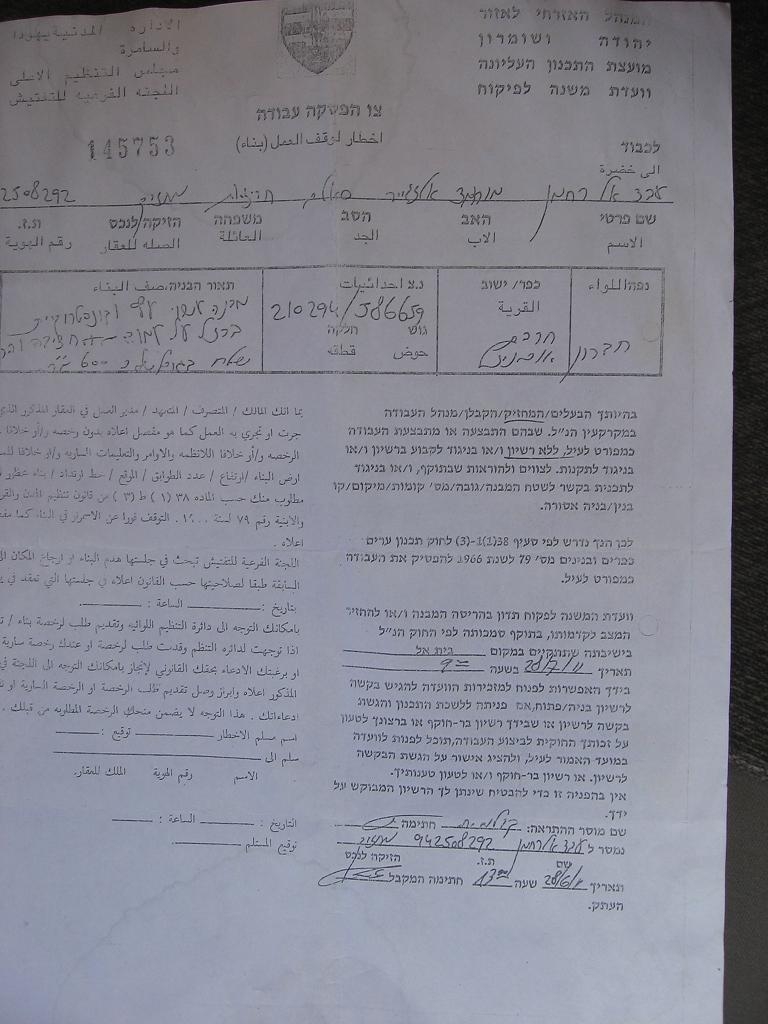 המנהל האזרחי לאזור
יהודה ושומרון
מועצת התכנון העליונה
וועדת משנה לפיקוח
الاداره المدنية يهودا
والسامرة
مجلس التنظيم الاعلى
اللجنه الفرعيه للتفتيش
צו הפסקה עבודה
اخطار لوقف العمل (بناء)
145753
לכבוד
الى حضرة
עבד אל רחמן מוחמד
2508292
שם פרטי האב הסב משפחה הזיקה/לנכס ת.ז.
الاسم الاب الجد العائلة الصله للعقار رقم الهوية
נפה/اللواء
חברון
כפר/ישוב
القرية
נ.צ احداثيات
210294/586659
גוש חלקה
حوض قطعه
תאור הבניה/وصف البناء
בהיותך הבעלים/המחזיק/הקבלן/מנהל העבודה
במקרקעין הנ"ל. שבהם התבצעה או מתבצעת העבודה
כמפורט לעיל, ללא רשיון ו/או בניגוד לקבוע ברשיון ו/או
בניגוד לתקנות. לצווים ולהוראות שבתוקף, ו/או בניגוד
לתכנית בקשר לשטח המבנה/גובה/מס' קומות/מיקום/קו
בנין/בניה אסורה.
לכן הנך נדרש לפי סעיף 38(1)1-(3) לחוק תכנון ערים
כפרים ובנינים מס' 79 לשנת 1966 להפסיק את העבודה
כמפורט לעיל.
וועדת המשנה לפקוח תדון בהריסה המבנה ו/או להחזיר
המצב לקדמותו, בתוקף סמכותה לפי החוק הנ"ל
בישיבתה שתתקיים במקום בית אל
תאריך 28/7/11 בשעה 9 00
בידך האפשרות לפנות למזכירות הוועדה להגיש בקשה
לרשיון בניה/פתוח, אם פניתה ללשכת התכנון והגשת
בקשה לרשיון או שבידך רשיון בר-תוקף או ברצונך לטעון
על זכותך החוקית לביצוע העבודה, תוכל לפנות לוועדה
במועד האמור לעיל, ולהציג אישור על הגשת הבקשה
לרשיון. או רשיון בר-תוקף ו/או לטעון טענותיך.
אין בהפניה זו כדי להבטיח שינתן לך הרשיון המבוקש על
ידך.
שם מוסר ההתראה: חתימה
נמסר ל עבד אלרחמן 942508292
שם ת.ז. הזיקה לנכס
תאריך 28/6/11 שעה 13 00 חתימה המקבל
העתק.
بما انك المالك / المتصرف / المتعهد / مدير العمل في العقار المذكور الذي
جرت او تجري به العمل كما هو مفصل اعلاه بدون رخصه و/أو خلافا
الرخصه و/أو خلافا للانظمه والاوامر والتعليمات الساريه و/او خلافا
ارض البناء /ارتفاع / عدد الطوابق / الموقع / خط ارتداد / بناء محظور
مطلوب منك حسب الماده ٣٨ (١) ط (٣) من قانون تنظيم المدن والقرى
والابنية رقم ٧٩ لسنة التوقف فورا عن الاستمرار في البناء كما
اعلاه .
اللجنة الفرعية للتفتيش تبحث في جلستها هدم البناء او ارجاع المكان
السابقة طبقا لصلاحيتها حسب القانون اعلاه في جلستها التي تعقد في
بتاريخ : الساعة :
بامكانك التوجه الى دائرة التنظيم اللوائيه وتقديم طلب لرخصة بناء /
اذا توجهت لدائره التنظم وقدمت طلب لرخصة او عندك رخصة سارية
او برغبتك الادعاء بحقك القانوني لإنجاز بامكانك التوجه الى اللجنة في
المذكور اعلاه وابراز وصل تقديم طلب الرخصة او الرخصة السارية او
ادعاءاتك . هذا التوجه لا يضمن منحك الرخصة المطلوبه من قبلك .
اسم مسلم الاخطار توقيع :
سلم الى
الاسم رقم الهوية الملك للعقار.
التاريخ : الساعة :
توقيع المستلم